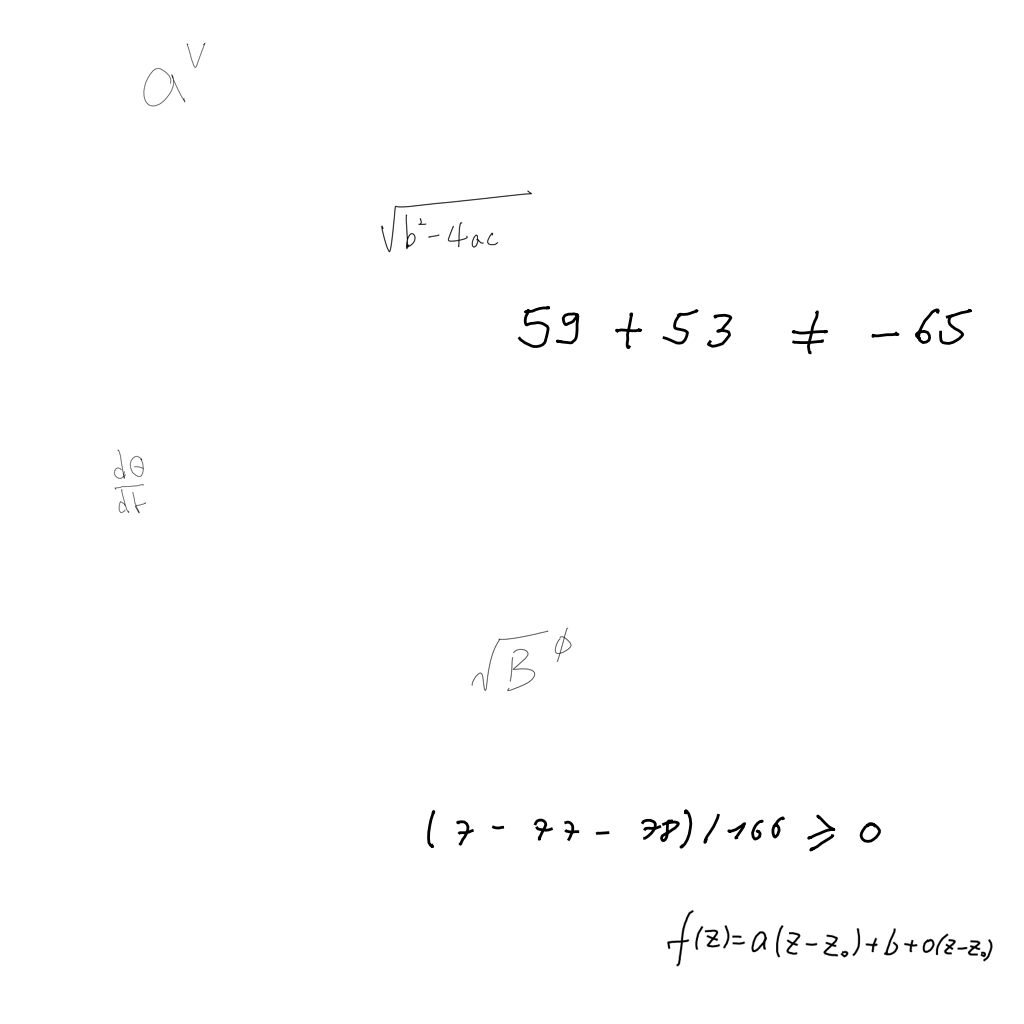 a^v
√(b²-4ac)
59 + 53 ≠ -65
dθ/dt
√B^ϕ
(7 - 77 - 78)/166 ⩾ 0
f(z)=a(z-z₀)+b+o(z-z₀)